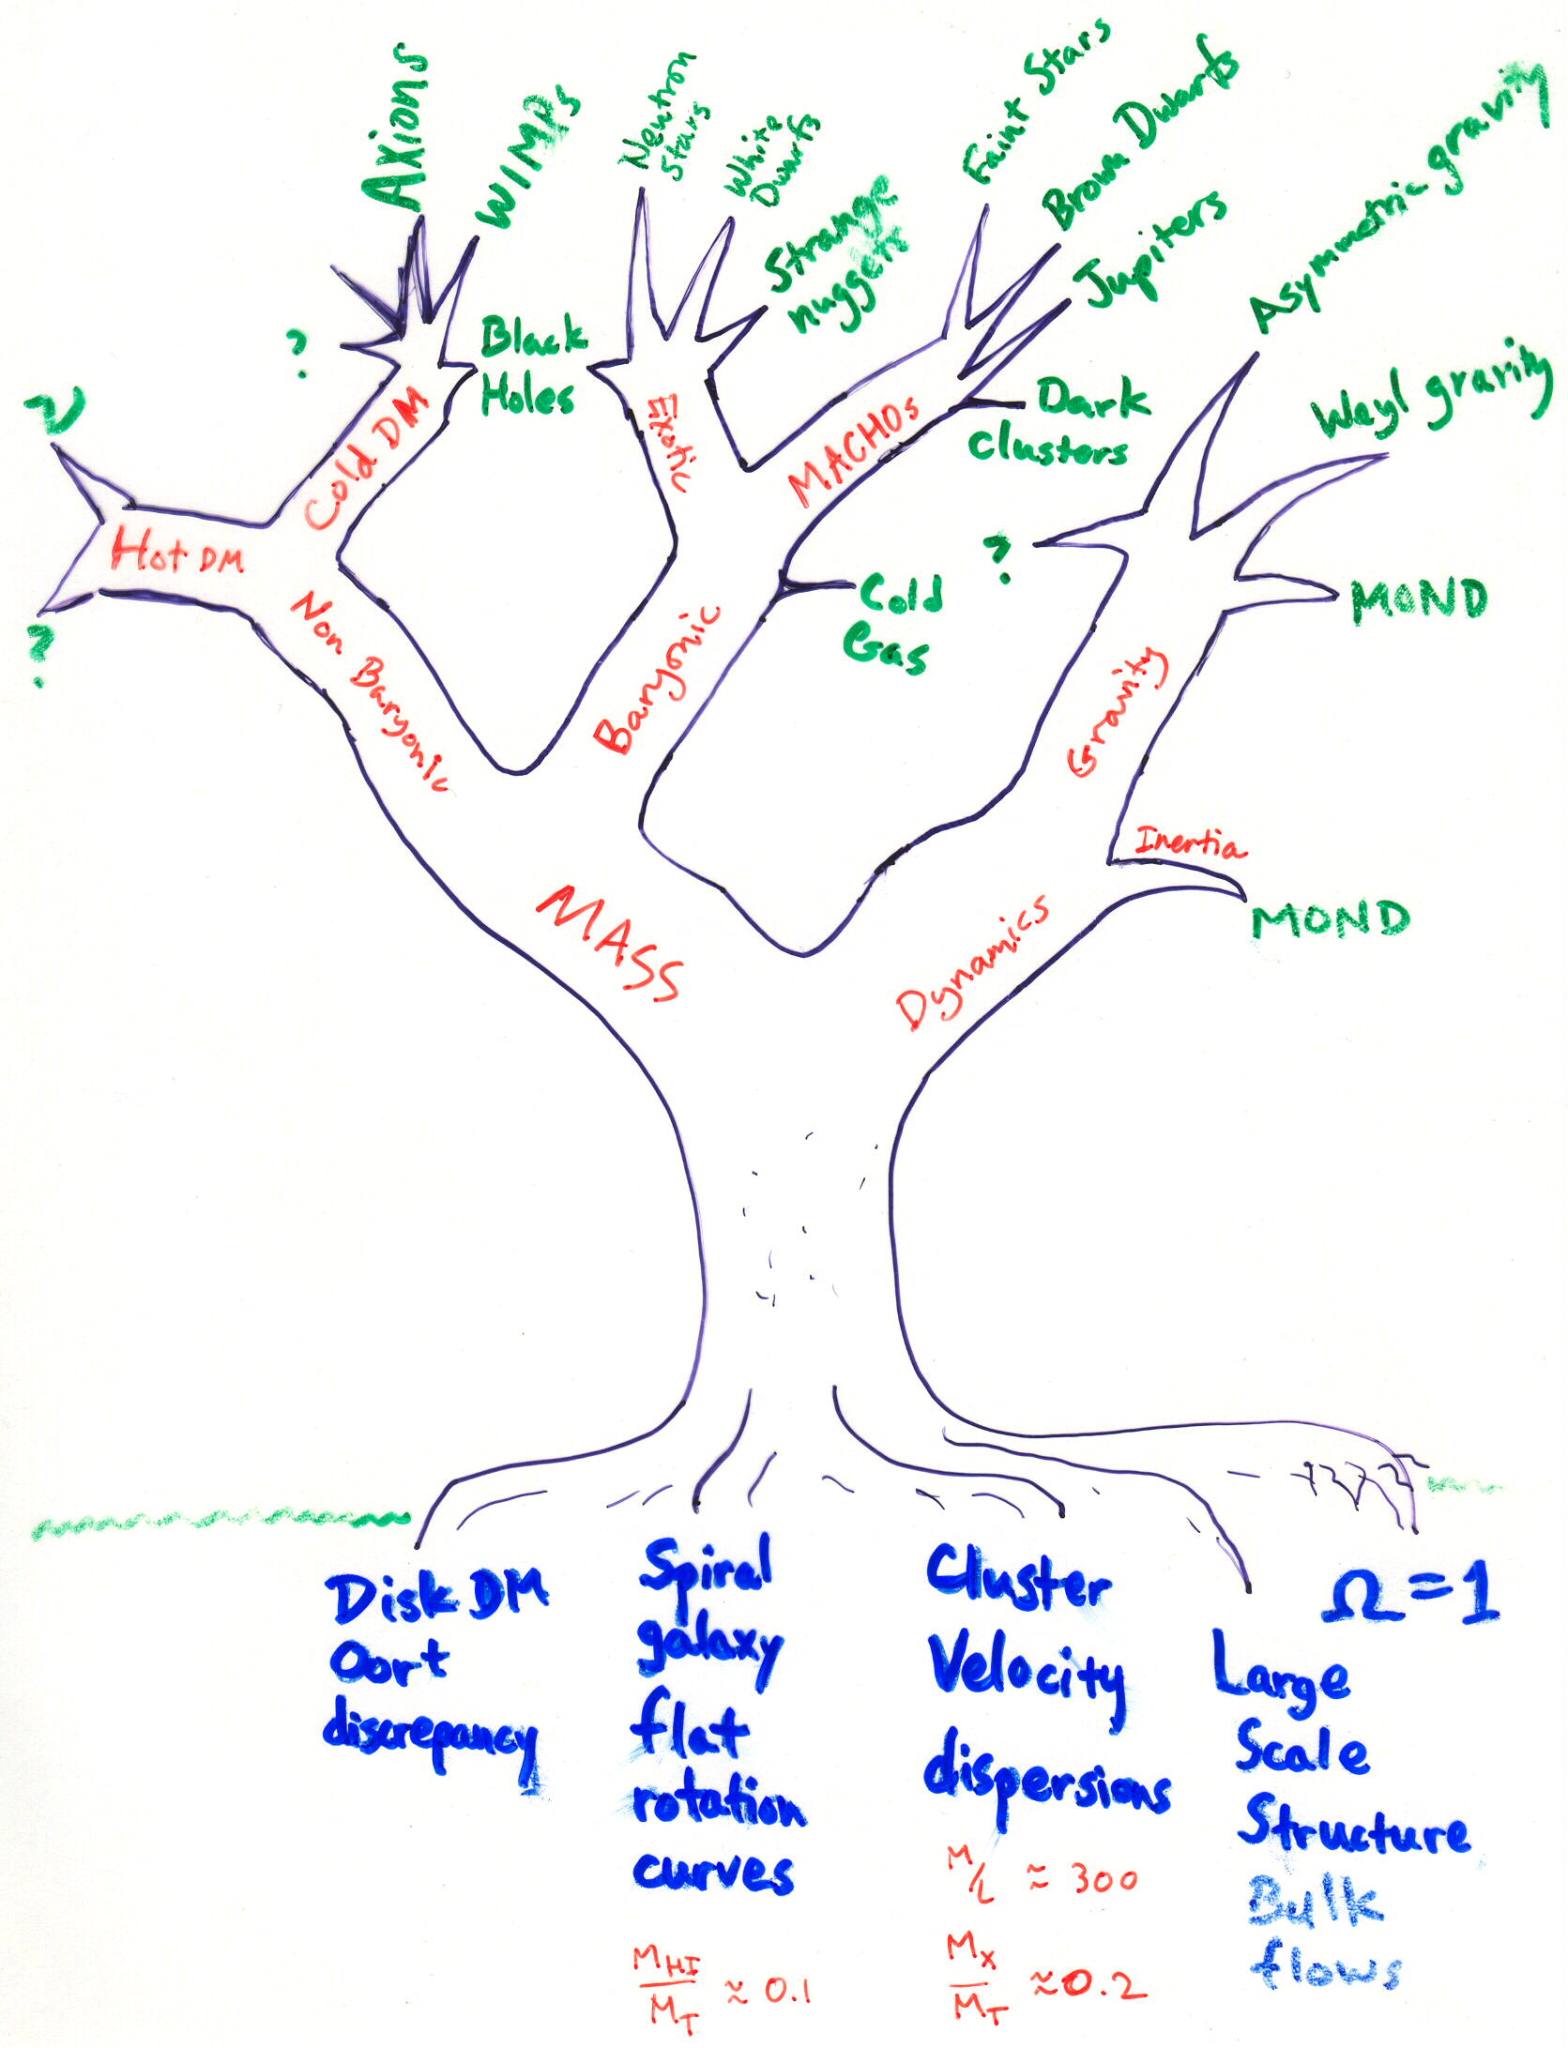 Axions
WIMPs
Neutron
Stars
White
Dwarfs
Strange
nuggets
Faint Stars
Brown Dwarfs
Jupiters
Asymmetric gravity
Weyl gravity
?
Black
Holes
Dark
clusters
ν
Hot DM
?
Cold DM
Exotic
MACHOs
?
Cold
Gas
MOND
Non Baryonic
Baryonic
Gravity
Inertia
MOND
MASS
Dynamics
Disk DM
Oort
discrepancy
Spiral
galaxy
flat
rotation
curves
M_HI/M_T ≈ 0.1
Cluster
Velocity
dispersions
M/L ≈ 300
M_X/M_T ≈ 0.2
Ω = 1
Large
Scale
Structure
Bulk
flows